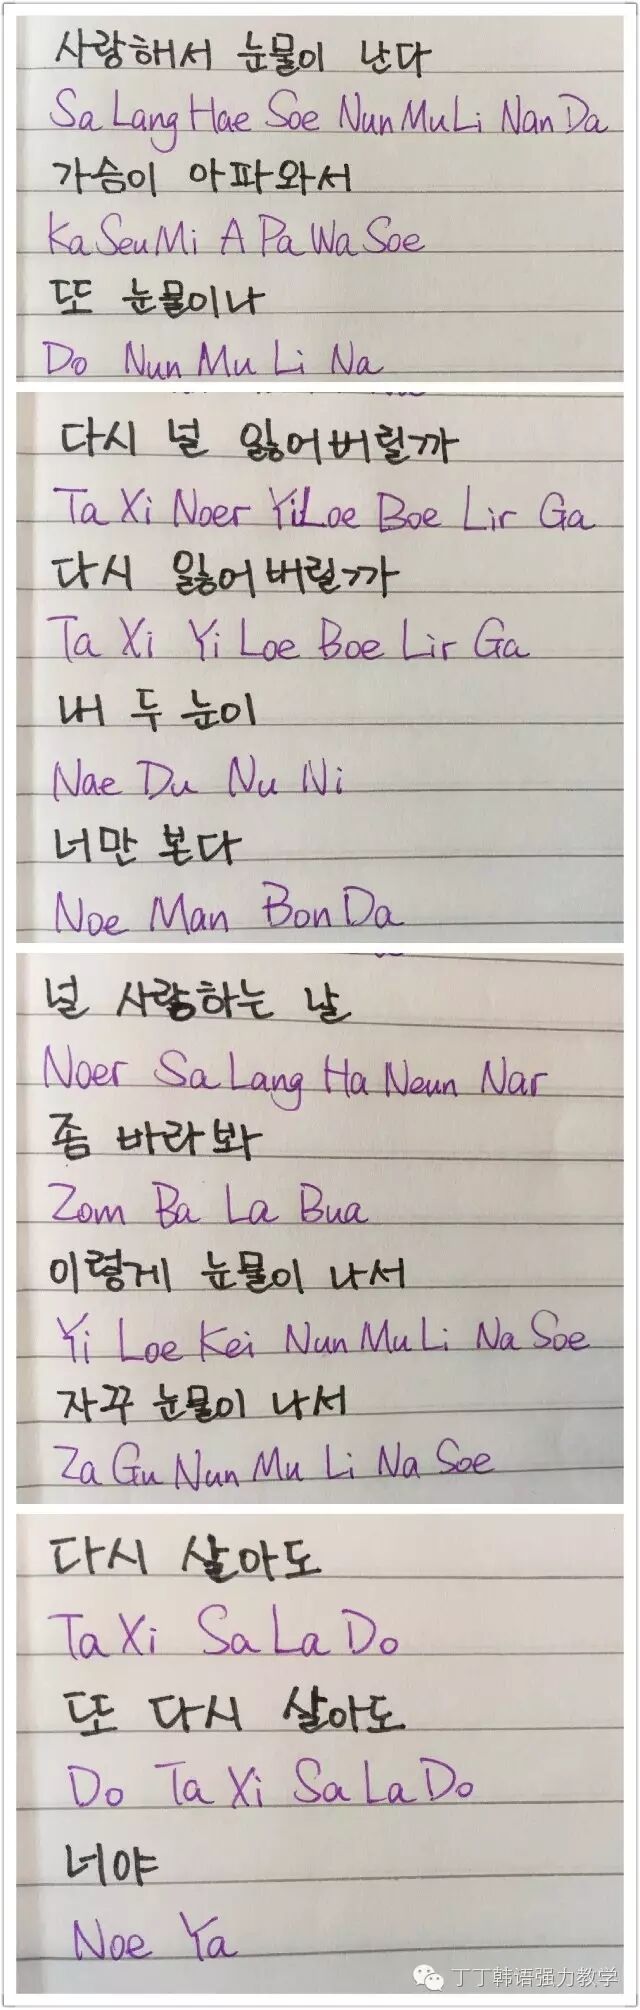 사랑해서 눈물이 난다
Sa Lang Hae Soe Nun Mu Li Nan Da
가슴이 아파와서
Ka Seu Mi A Pa Wa Soe
또 눈물이나
Do Nun Mu Li Na
다시 널 잃어버릴까
Ta Xi Noer Yi Loe Boe Lir Ga
다시 잃어버릴까
Ta Xi Yi Loe Boe Lir Ga
내 두 눈이
Nae Du Nu Ni
너만 본다
Noe Man Bon Da
널 사랑하는 날
Noer Sa Lang Ha Neun Nar
좀 바라봐
Zom Ba La Bua
이렇게 눈물이 나서
Yi Loe Kei Nun Mu Li Na Soe
자꾸 눈물이 나서
Za Gu Nun Mu Li Na Soe
다시 살아도
Ta Xi Sa La Do
또 다시 살아도
Do Ta Xi Sa La Do
너야
Noe Ya
丁丁韩语强力教学